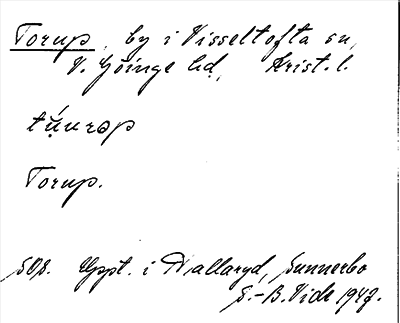 Torup, by i Visseltofta sn,
V. Göinge hd, Krist. l.
tụ́urɘp
Torup.
SOS. Uppt. i Hallaryd, Sunnerbo
S.-B. Vide 1947.